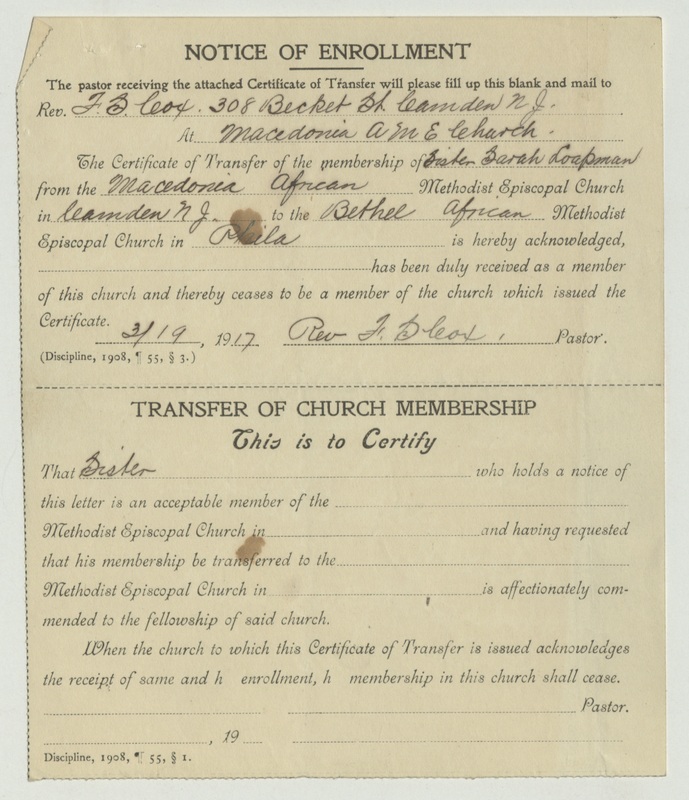 NOTICE OF ENROLLMENT
The pastor receiving the attached Certificate of Transfer will please fill up this blank and mail to
Rev. F. B. Cox. 308 Becket St. Camden N. J.
At Macedonia A M E Church.
The Certificate of Transfer of the membership of Sister Sarah
from the Macedonia African Methodist Episcopal Church
in Camden N J. to the Bethel African Methodist
Episcopal Church in Phila is hereby acknowledged,
has been duly received as a member
of this church and thereby ceases to be a member of the church which issued the
Certificate.
3/19, 1917 Rev F. B Cox. Pastor.
(Discipline, 1908, ¶ 55, § 3.)
TRANSFER OF CHURCH MEMBERSHIP
This is to Certify
That Sister who holds a notice of
this letter is an acceptable member of the
Methodist Episcopal Church in and having requested
that his membership be transferred to the
Methodist Episcopal Church in is affectionately com-
mended to the fellowship of said church.
When the church to which this Certificate of Transfer is issued acknowledges
the receipt of same and h enrollment, h membership in this church shall cease.
Pastor.
, 19
Discipline, 1908, ¶ 55, § 1.